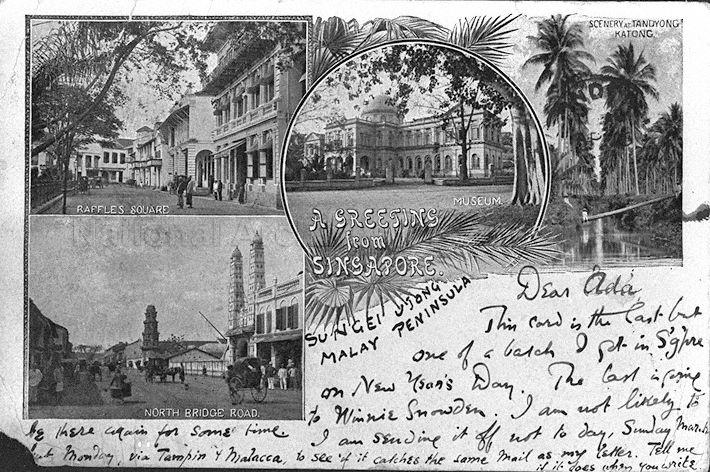 SCENERY AT TANDYONG
KATONG.
RAFFLES SQUARE
MUSEUM.
National Arc
A GREETING
from
SINGAPORE.
NORTH BRIDGE ROAD.
SUNGEI UJONG
MALAY PENINSULA
Dear Ada
This card is the last but
one of a batch I got in S'pore
on New Year's Day. The last is going
to Winnie Snowden. I am not likely to
be there again for some time.
I am sending it off not to day, Sunday March
but Monday, via Tampin & Malacca, to see if it catches the same mail as my letter. Tell me
if it does when you write.